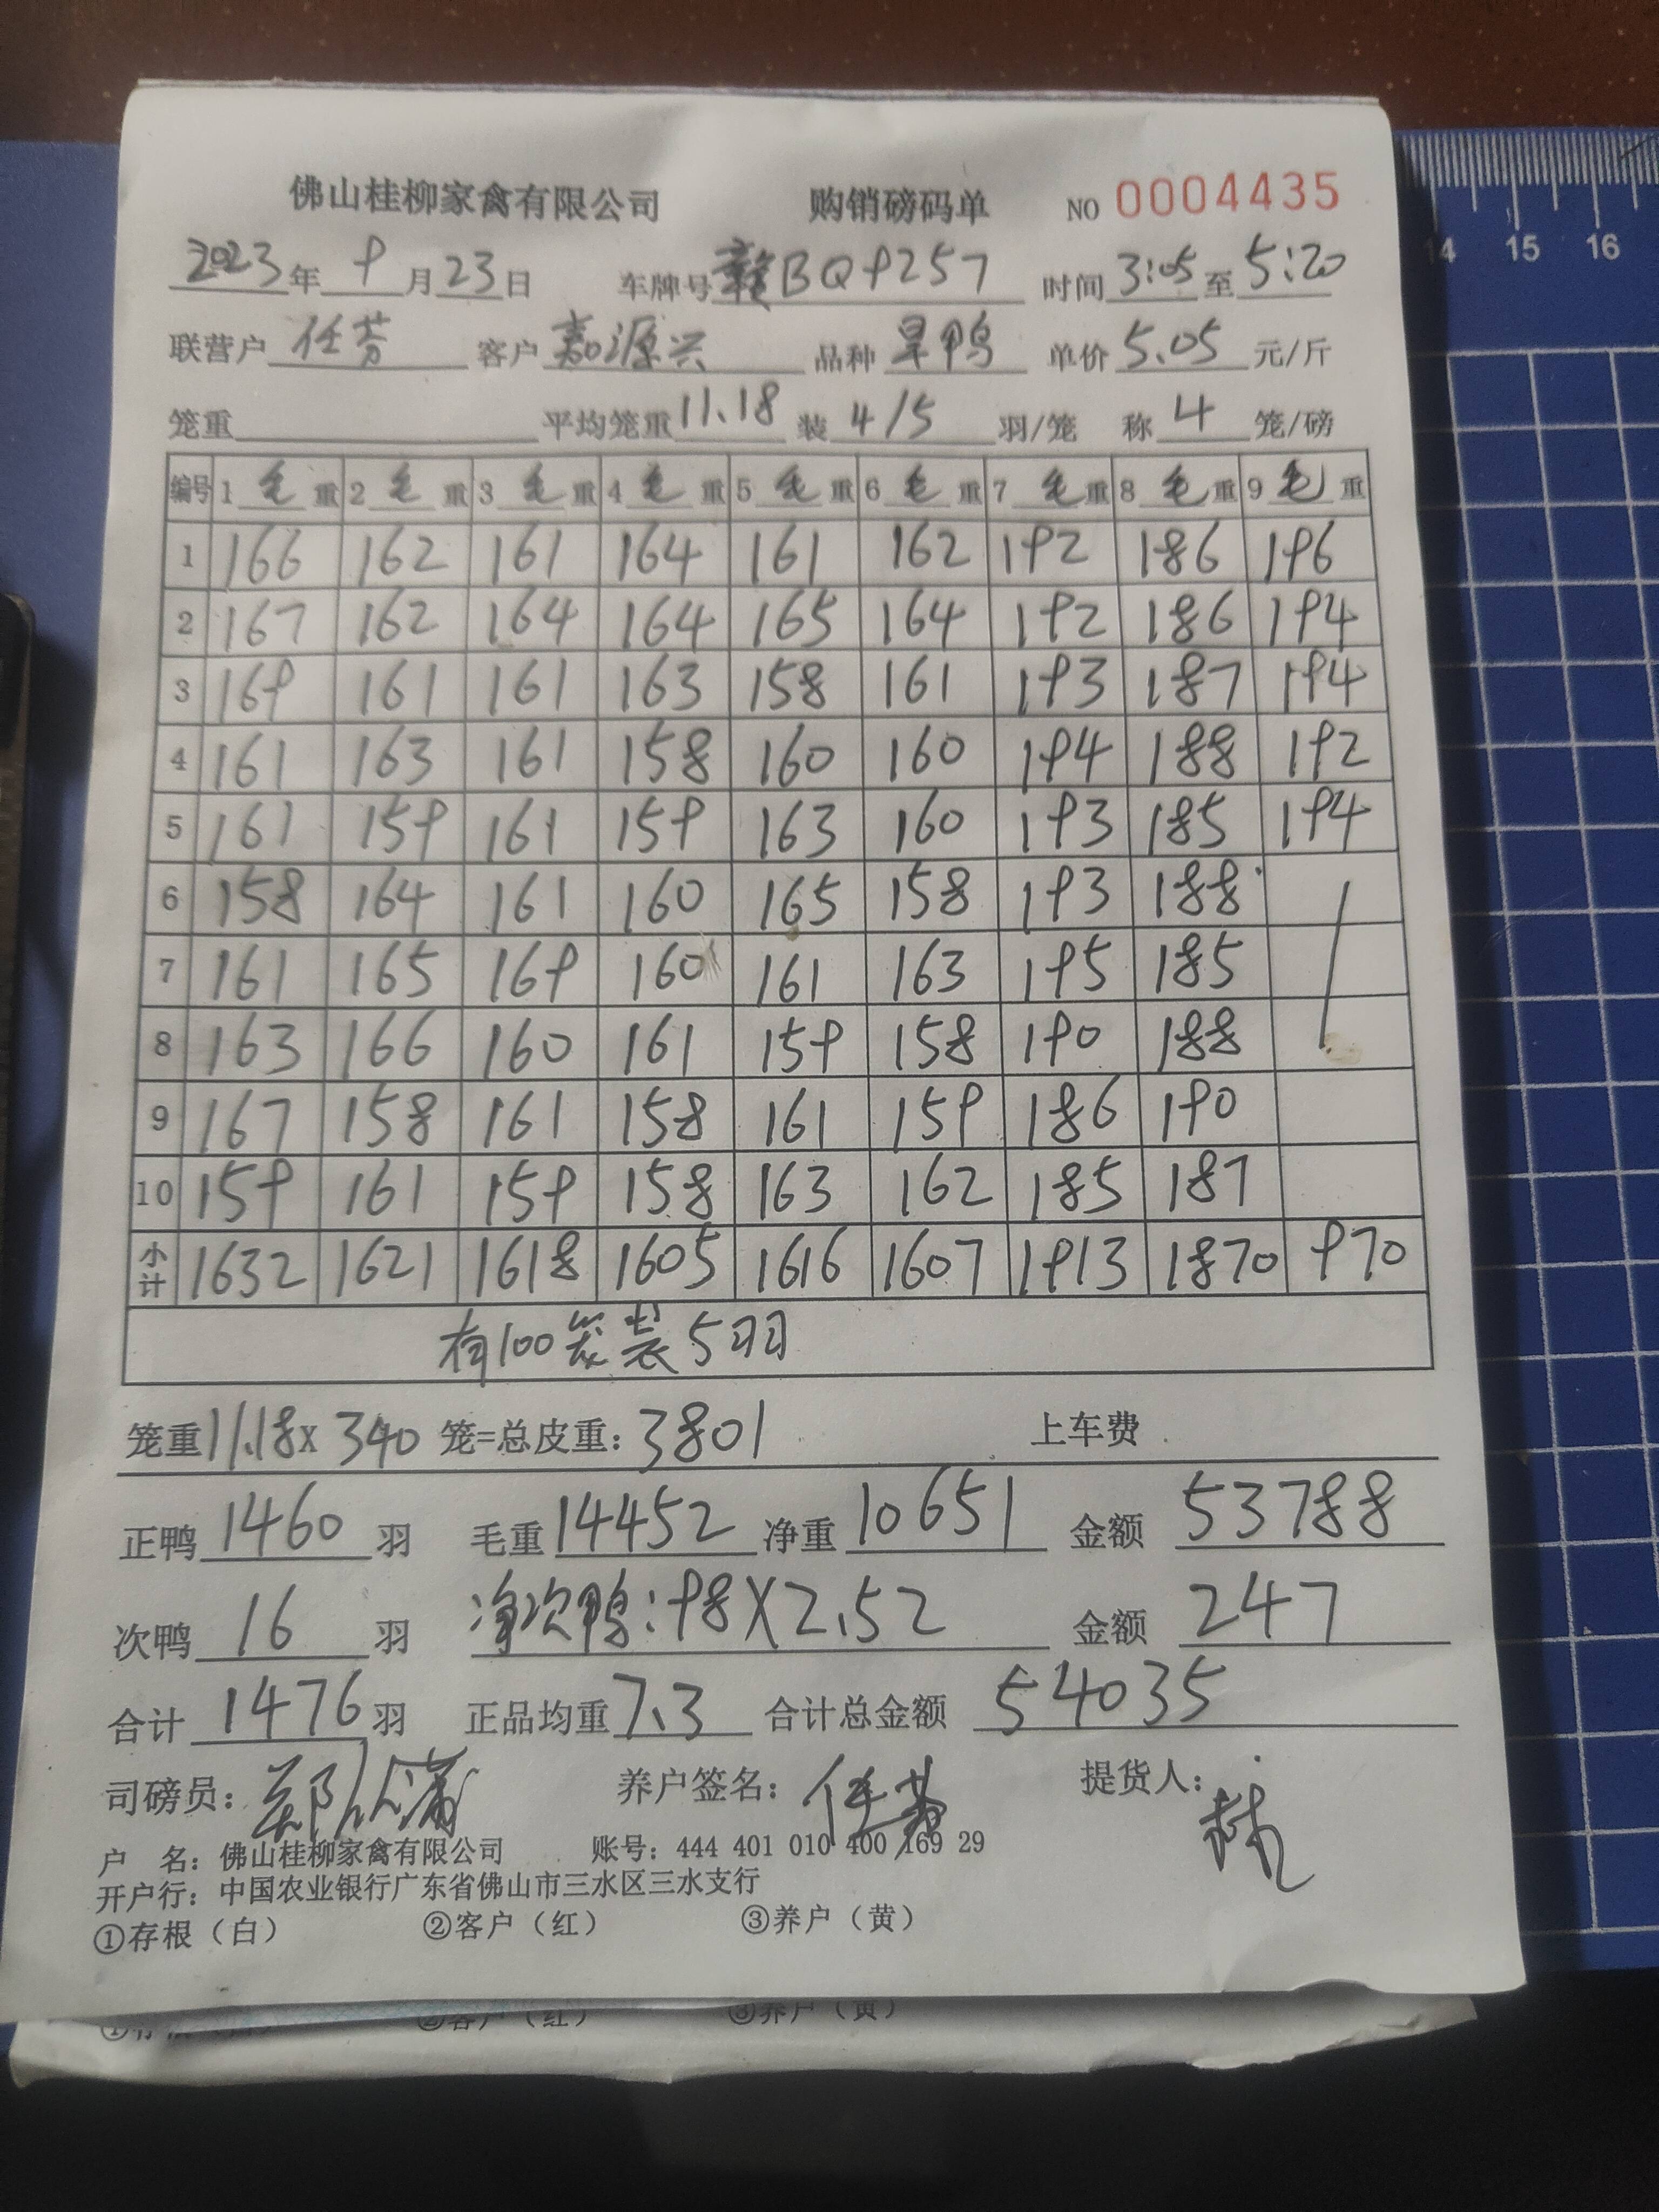 佛山桂柳家禽有限公司 购销磅码单 NO 0004435
2023年 9月23日 车牌号 赣BQ9257 时间 3:05 至 5:20
联营户 任芬 客户 嘉源兴 品种 旱鸭 单价 5.05 元/斤
笼重 平均笼重 11.18 装 4/5 羽/笼 称 4 笼/磅
编号 1 毛 重 2 毛 重 3 毛 重 4 毛 重 5 毛 重 6 毛 重 7 毛 重 8 毛 重 9 毛 重
1 166 162 161 164 161 162 192 186 196
2 167 162 164 164 165 164 192 186 194
3 169 161 161 163 158 161 193 187 194
4 161 163 161 158 160 160 194 188 192
5 161 159 161 159 163 160 193 185 194
6 158 164 161 160 165 158 193 188
7 161 165 169 160 161 163 195 185
8 163 166 160 161 159 158 190 188
9 167 158 161 158 161 159 186 190
10 159 161 159 158 163 162 185 187
小计 1632 1621 1618 1605 1616 1607 1913 1870 970
有100笼装5羽
笼重11.18X 340 笼=总皮重：3801 上车费
正鸭 1460 羽 毛重 14452 净重 10651 金额 53788
次鸭 16 羽 净次鸭：98X2.52 金额 247
合计 1476 羽 正品均重 7.3 合计总金额 54035
司磅员： 养户签名：任芬 提货人：
户 名：佛山桂柳家禽有限公司 账号：444 401 010 400 169 29
开户行：中国农业银行广东省佛山市三水区三水支行
①存根（白） ②客户（红） ③养户（黄）
②客户（红） ③养户（黄）